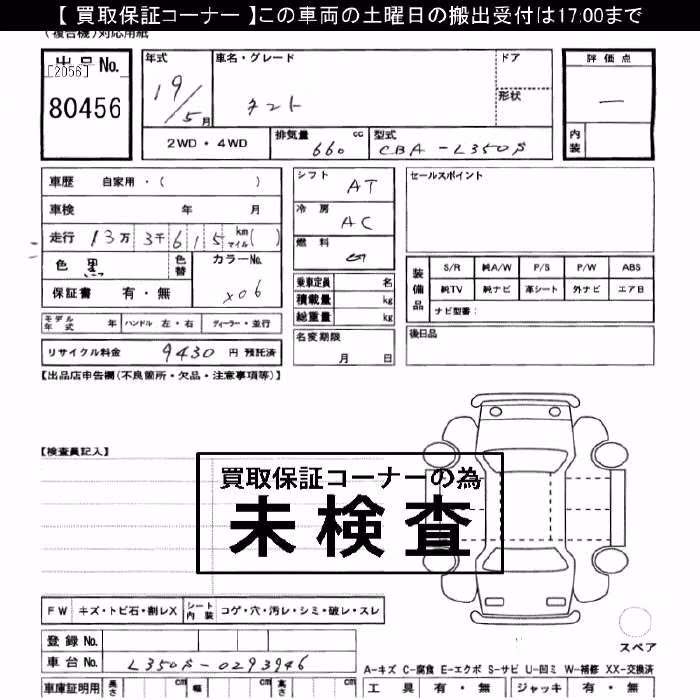 【 買取保証コーナー 】この車両の土曜日の搬出受付は17:00まで
(複合機)対応用紙
出品No.
[2056]
80456
年式 車名・グレード ドア 評価点
19/5月 タント 形状 —
2WD・4WD 排気量 660 cc 型式 CBA-L350S 内装
車歴 自家用・( )
シフト AT セールスポイント
車検 年 月
冷房 AC
走行 13万3千615 km マイル( )
燃料
色 黒 色替 カラーNo. X06
保証書 有・無
乗車定員 名
積載量 kg
総重量 kg
装備品 S/R 純A/W P/S P/W ABS
純TV 純ナビ 革シート 外ナビ エア日
ナビ型番:
モデル年式 年 ハンドル 左・右 ディーラー・並行
名変期限 月 日
後日品
リサイクル料金 9430 円 預託済
【出品店申告欄(不良箇所・欠品・注意事項等)】
【検査員記入】
買取保証コーナーの為
未検査
FW キズ・トビ石・割レX シート内装 コゲ・穴・汚レ・シミ・破レ・スレ
登録No.
スペア
車台No. L350S-0293946
A-キズ C-腐食 E-エクボ S-サビ U-凹ミ W-補修 XX-交換済
車庫証明用 長さ cm 幅 cm 高さ cm 工具 有・無 ジャッキ 有・無